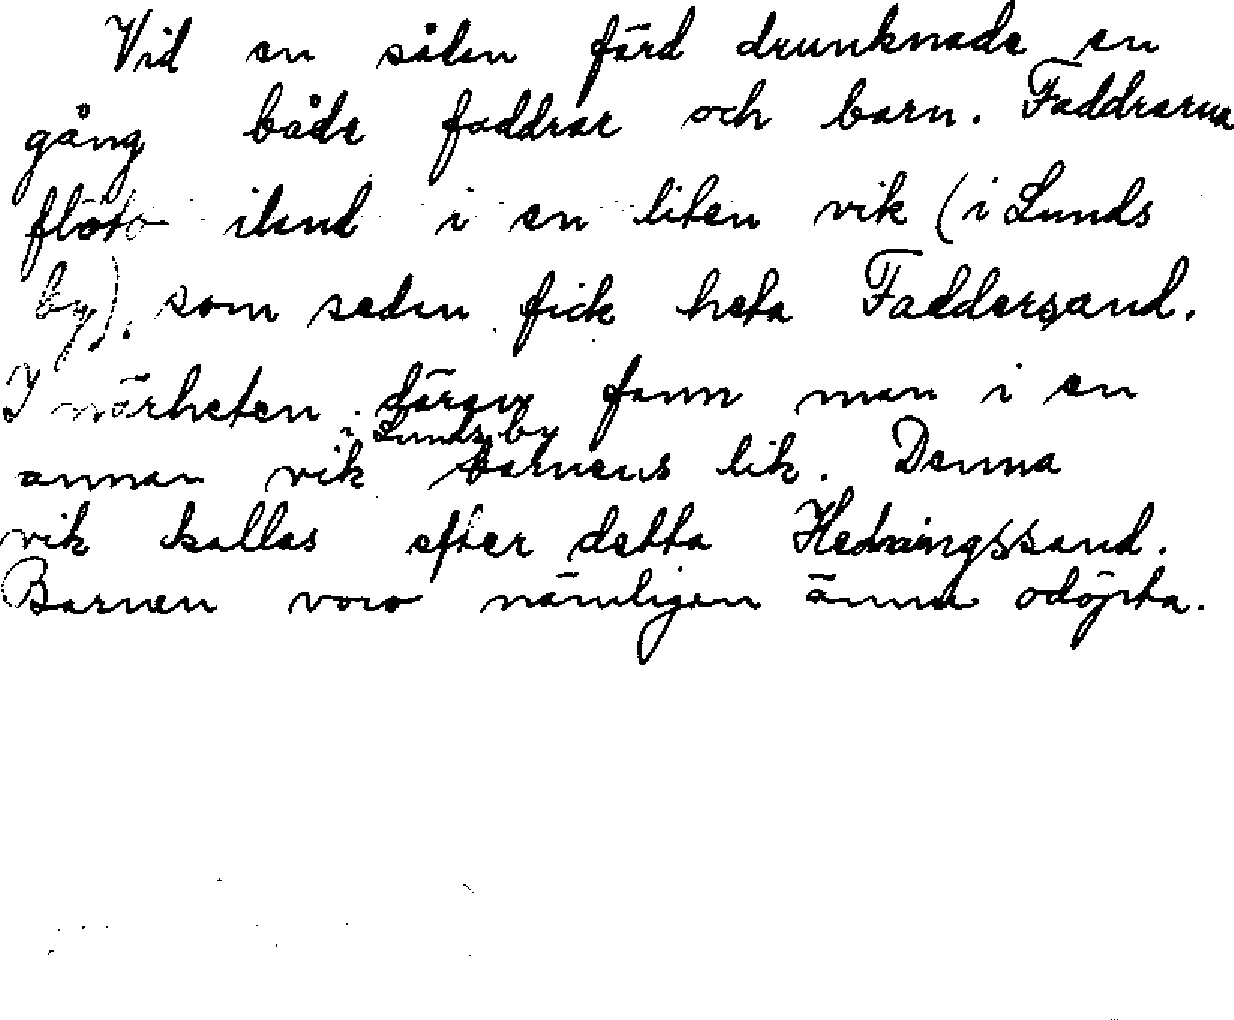 Vid en sådan färd drunknade en
gång både faddrar och barn. Faddrarna
flöto iland i en liten vik (i Lunds
by), som sedan fick heta Faddersand.
I närheten därav fann man i en
i Lunds by
annan vik barnens lik. Denna
vik kallas efter detta Hedningssand.
Barnen voro nämligen ännu odöpta.